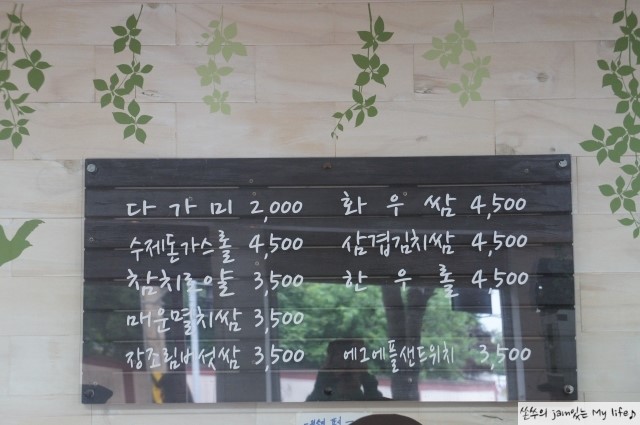 다가미 2,000
수제돈가스롤 4,500
참치로얄 3,500
매운멸치쌈 3,500
장조림버섯쌈 3,500
화우쌈 4,500
삼겹김치쌈 4,500
한우롤 4,500
에그에플샌드위치 3,500
쏜쑤의 jam있는 My life♪